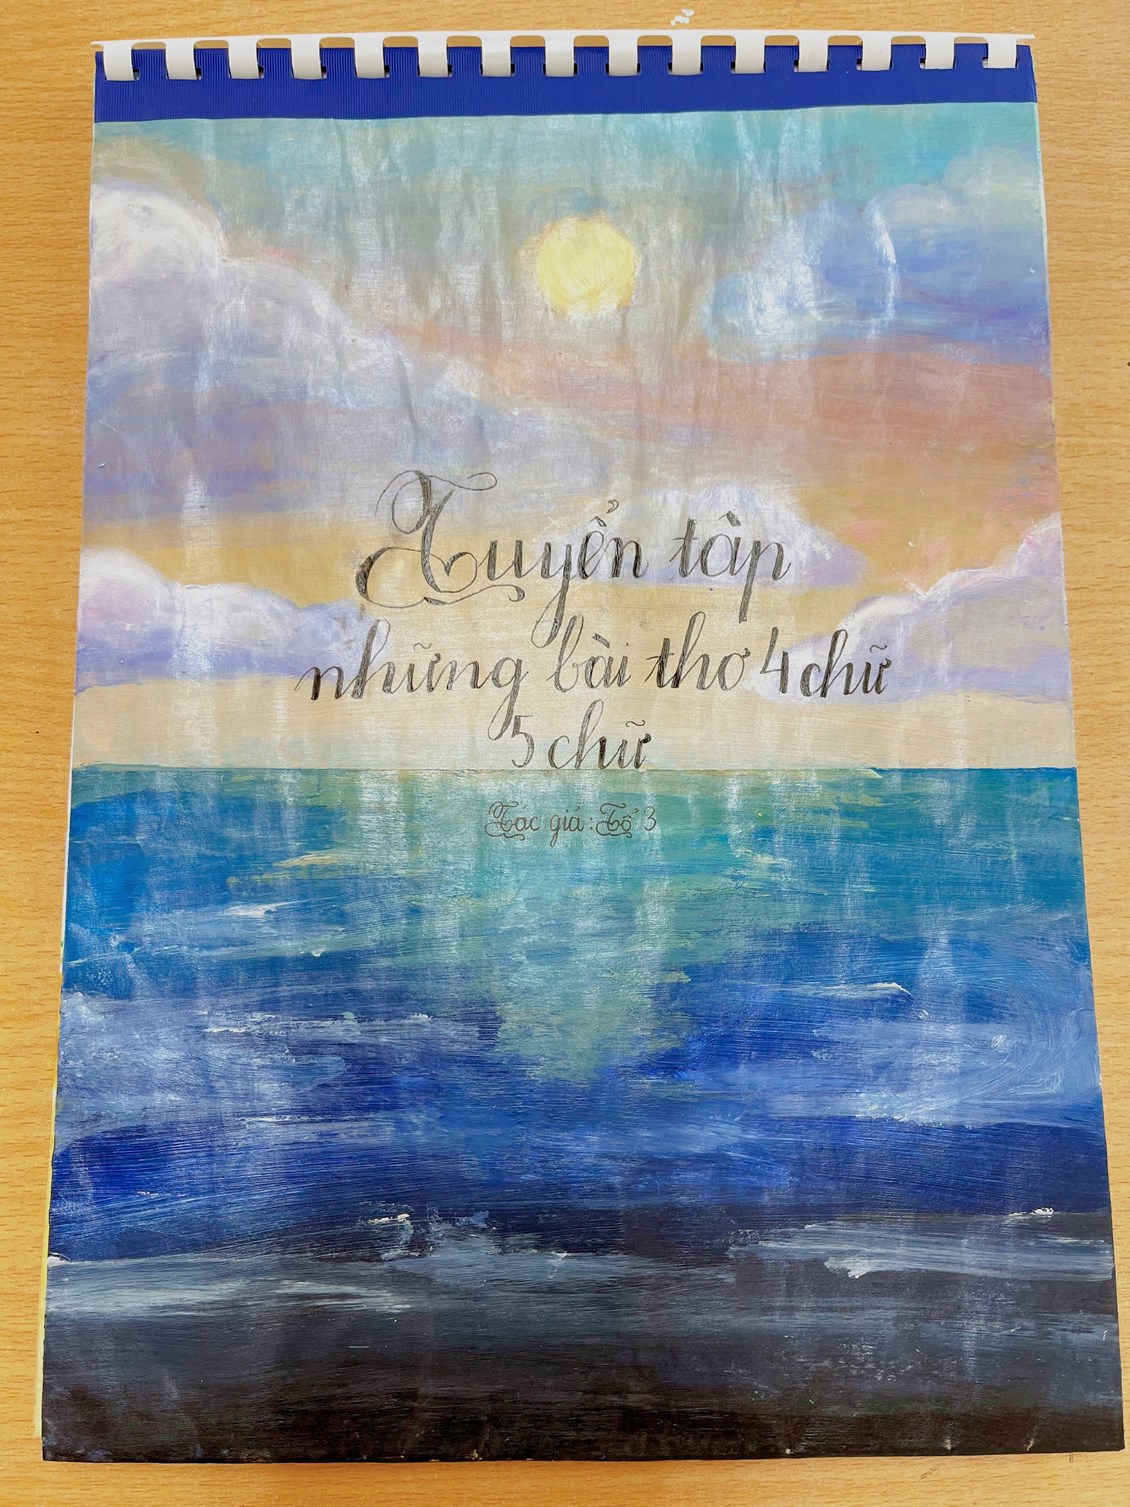 Tuyển tập
những bài thơ 4 chữ
5 chữ
Tác giả: Tổ 3